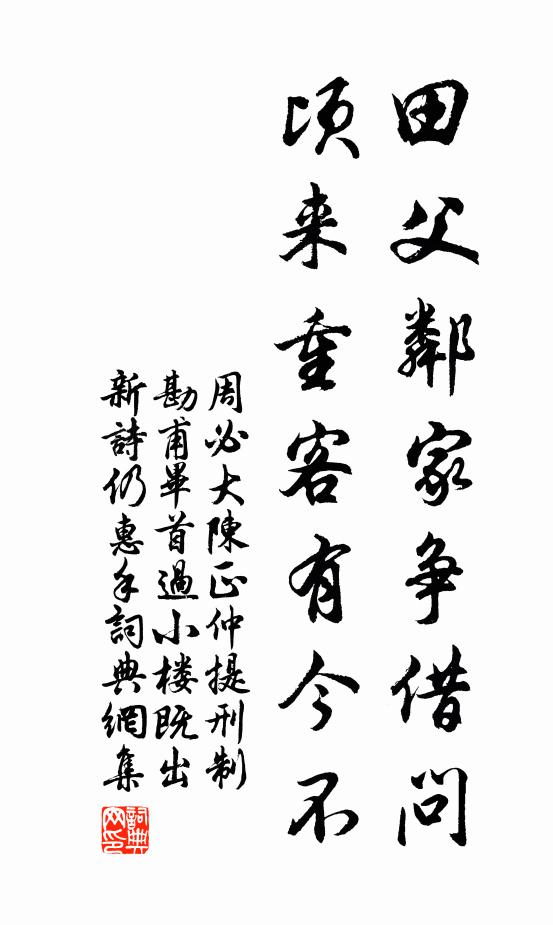 田父鄰家争借問
頃来重客有今不
周必大陳正仲提刑制
勘甫畢首過小楼既出
新詩仍惠手詞典網集
詞典網印